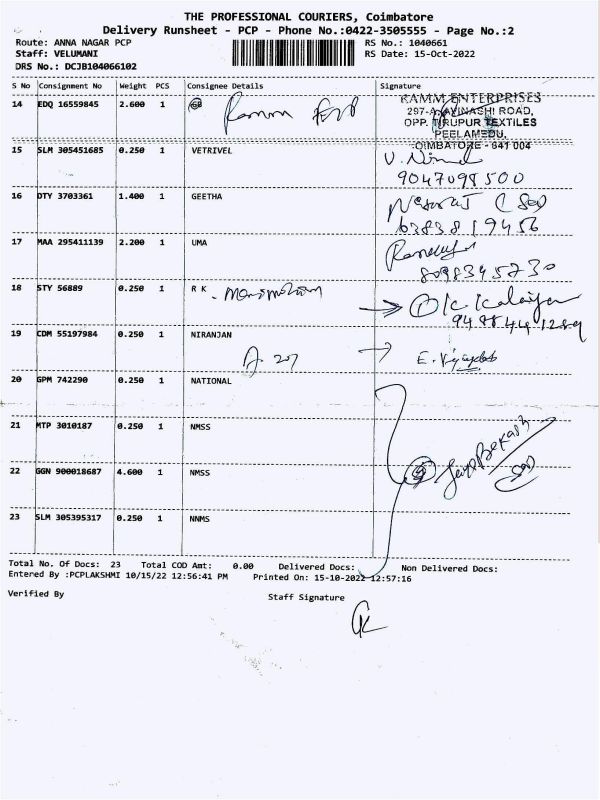 THE PROFESSIONAL COURIERS, Coimbatore
Delivery Runsheet - PCP - Phone No.:0422-3505555 - Page No.:2
Route: ANNA NAGAR PCP
RS No.: 1040661
Staff: VELUMANI
RS Date: 15-Oct-2022
DRS No.: DCJB104066102
S No Consignment No Weight PCS Consignee Details Signature
14 EDQ 16559845 2.600 1
RAMM ENTERPRISES
297-A, AVINASHI ROAD,
OPP. TIRUPUR TEXTILES
PEELAMEDU,
COIMBATORE - 641 004
15 SLM 305451685 0.250 1 VETRIVEL
9047098500
16 DTY 3703361 1.400 1 GEETHA
63838 19456
17 MAA 295411139 2.200 1 UMA
8098345730
18 STY 56889 0.250 1 R K
19 CDM 55197984 0.250 1 NIRANJAN
20 GPM 742290 0.250 1 NATIONAL
21 MTP 3010187 0.250 1 NMSS
22 GGN 900018687 4.600 1 NMSS
23 SLM 305395317 0.250 1 NNMS
Total No. Of Docs: 23 Total COD Amt: 0.00 Delivered Docs: Non Delivered Docs:
Entered By :PCPLAKSHMI 10/15/22 12:56:41 PM Printed On: 15-10-2022 12:57:16
Verified By Staff Signature